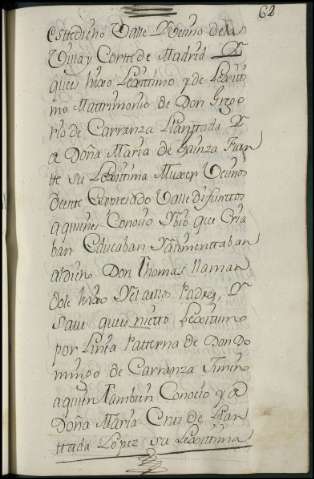 62
este dicho Valle Vecino de la
Villa y Corte de Madrid Y
que es hixo Lexitimo y de Lexiti
mo Matrimonio de Don Grego
rio de Carranza Llantada Y
a Doña Maria de Gainza Fran
su Lexitima Muxer Vecinos
de este expresado Valle difuntos
a quienes Conocio Vio que Cria
ban Educaban Y alimentaban
a dicho Don Thomas llaman
dole hixo Y el a ellos Padres, Y
Save que es nieto Lexitimo
por Linea Patterna de Don Do
mingo de Carranza
a quien tambien Conocio y a
Doña Maria Cruz de Llan
ttada Lopez su Lexittima